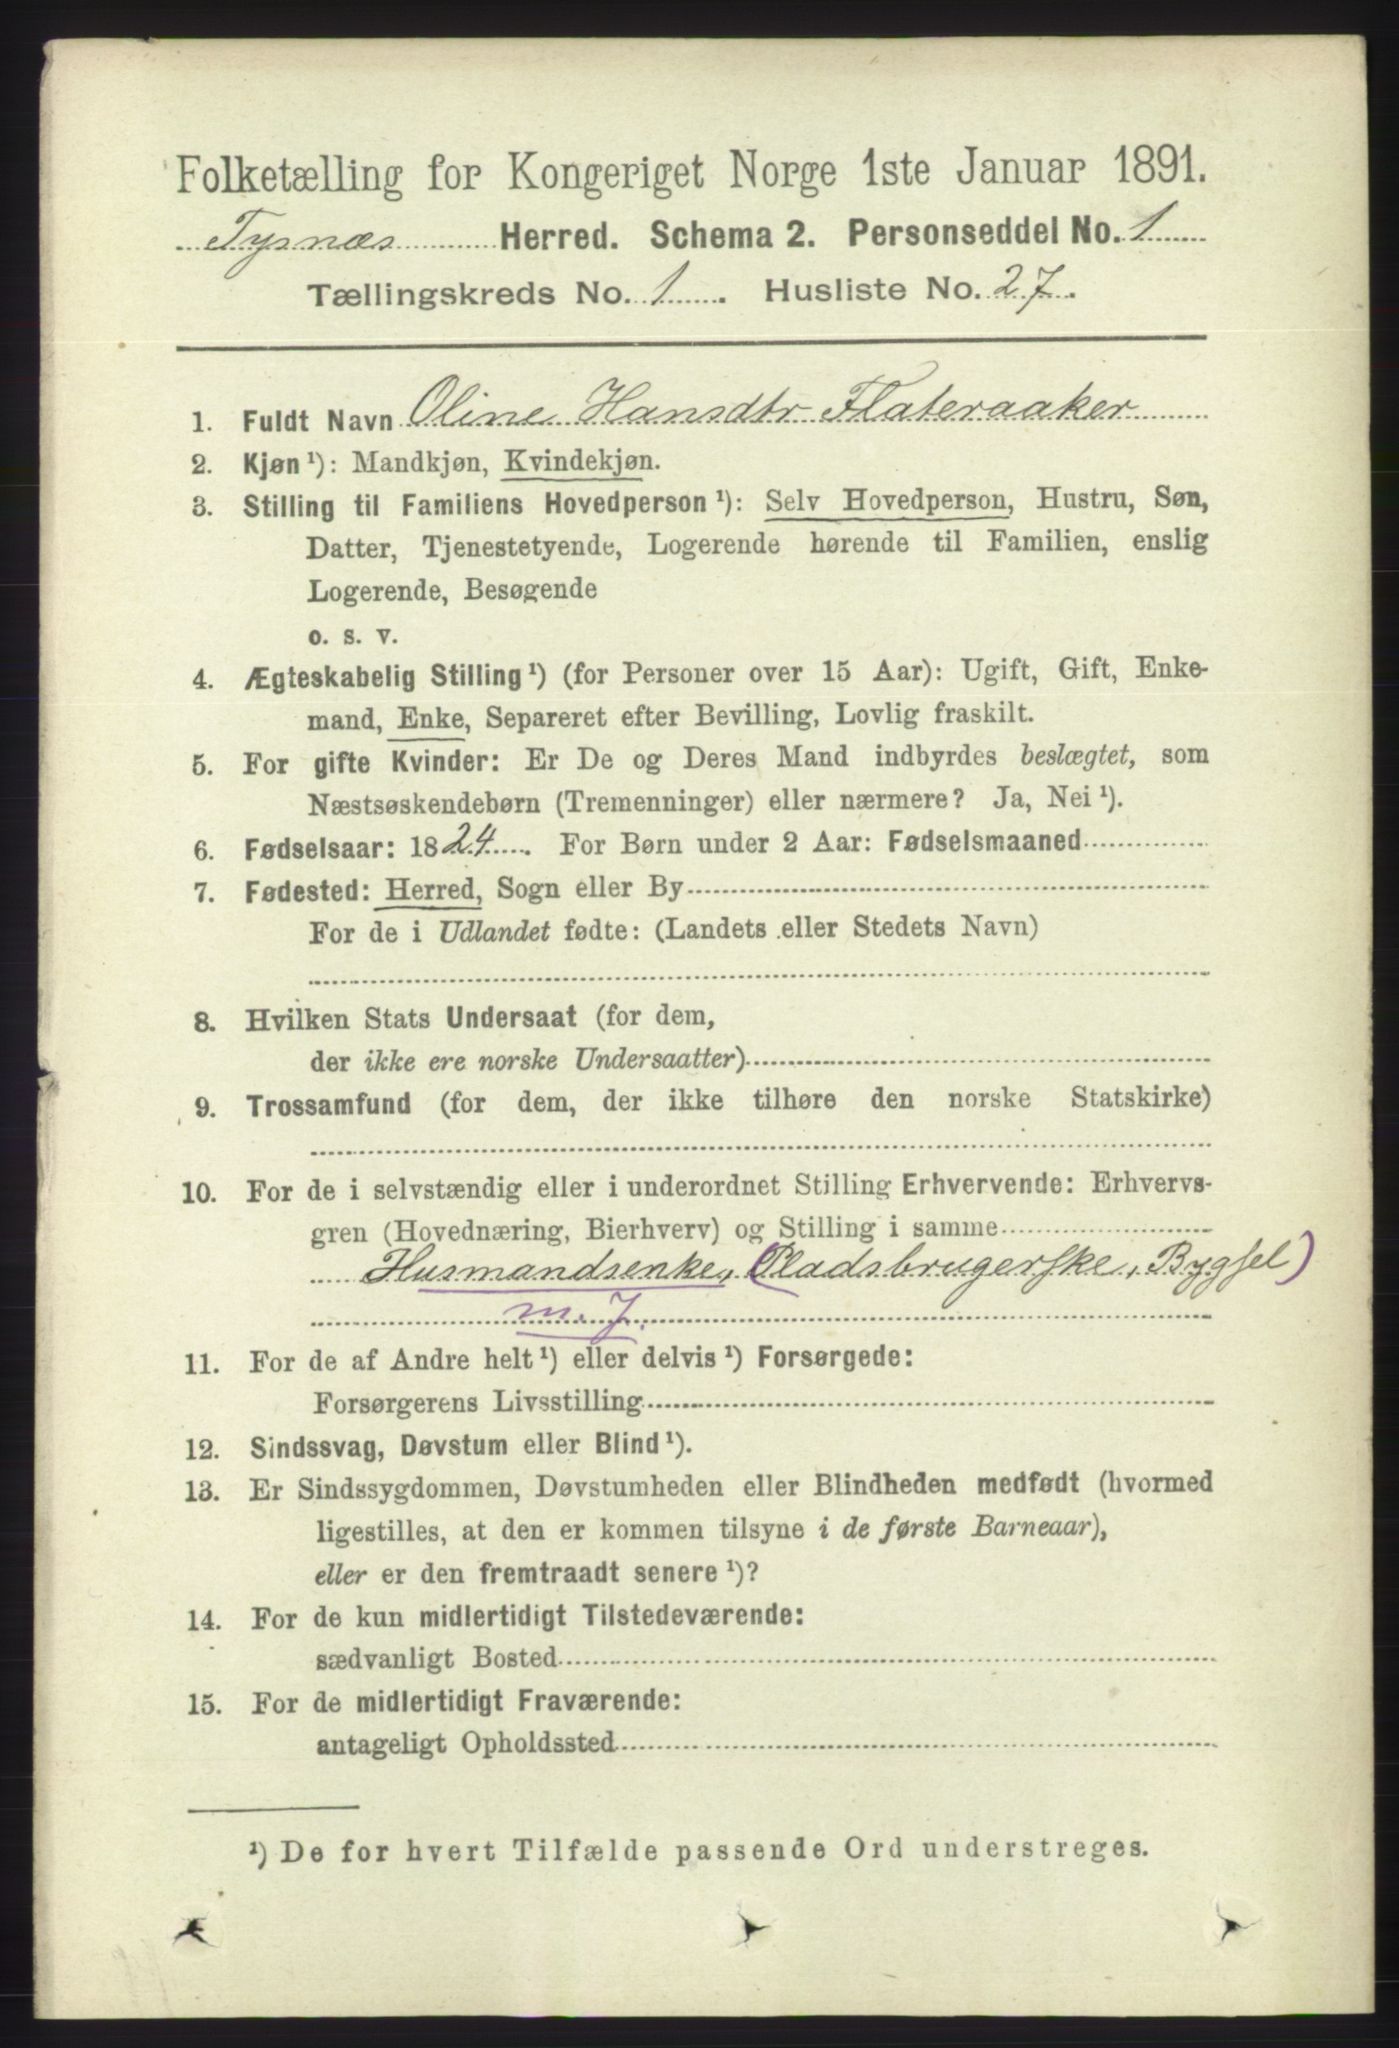 Folketælling for Kongeriget Norge 1ste Januar 1891.
Tysnæs Herred. Schema 2. Personseddel No. 1
Tællingskreds No. 1. Husliste No. 27.
1. Fuldt Navn Oline Hansdtr Flateraaker
2. Kjøn ¹): Mandkjøn, Kvindekjøn.
3. Stilling til Familiens Hovedperson ¹): Selv Hovedperson, Hustru, Søn,
Datter, Tjenestetyende, Logerende hørende til Familien, enslig
Logerende, Besøgende
o. s. v.
4. Ægteskabelig Stilling ¹) (for Personer over 15 Aar): Ugift, Gift, Enke-
mand, Enke, Separeret efter Bevilling, Lovlig fraskilt.
5. For gifte Kvinder: Er De og Deres Mand indbyrdes beslægtet, som
Næstsøskendebørn (Tremenninger) eller nærmere? Ja, Nei ¹).
6. Fødselsaar: 1824. For Børn under 2 Aar: Fødselsmaaned
7. Fødested: Herred, Sogn eller By
For de i Udlandet fødte: (Landets eller Stedets Navn)
8. Hvilken Stats Undersaat (for dem,
der ikke ere norske Undersaatter)
9. Trossamfund (for dem, der ikke tilhøre den norske Statskirke)
10. For de i selvstændig eller i underordnet Stilling Erhvervende: Erhvervs-
gren (Hovednæring, Bierhverv) og Stilling i samme
Husmandsenke, (Pladsbrugerske, Bygsel)
m. J.
11. For de af Andre helt ¹) eller delvis ¹) Forsørgede:
Forsørgerens Livsstilling
12. Sindssvag, Døvstum eller Blind ¹).
13. Er Sindssygdommen, Døvstumheden eller Blindheden medfødt (hvormed
ligestilles, at den er kommen tilsyne i de første Barneaar),
eller er den fremtraadt senere ¹)?
14. For de kun midlertidigt Tilstedeværende:
sædvanligt Bosted
15. For de midlertidigt Fraværende:
antageligt Opholdssted
¹) De for hvert Tilfælde passende Ord understreges.